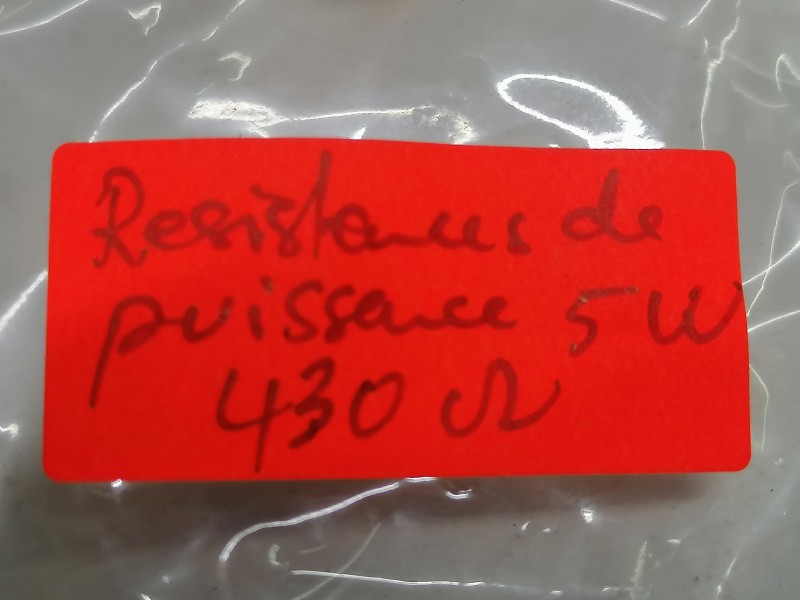 Resistances de
puissance 5 W
430 Ω